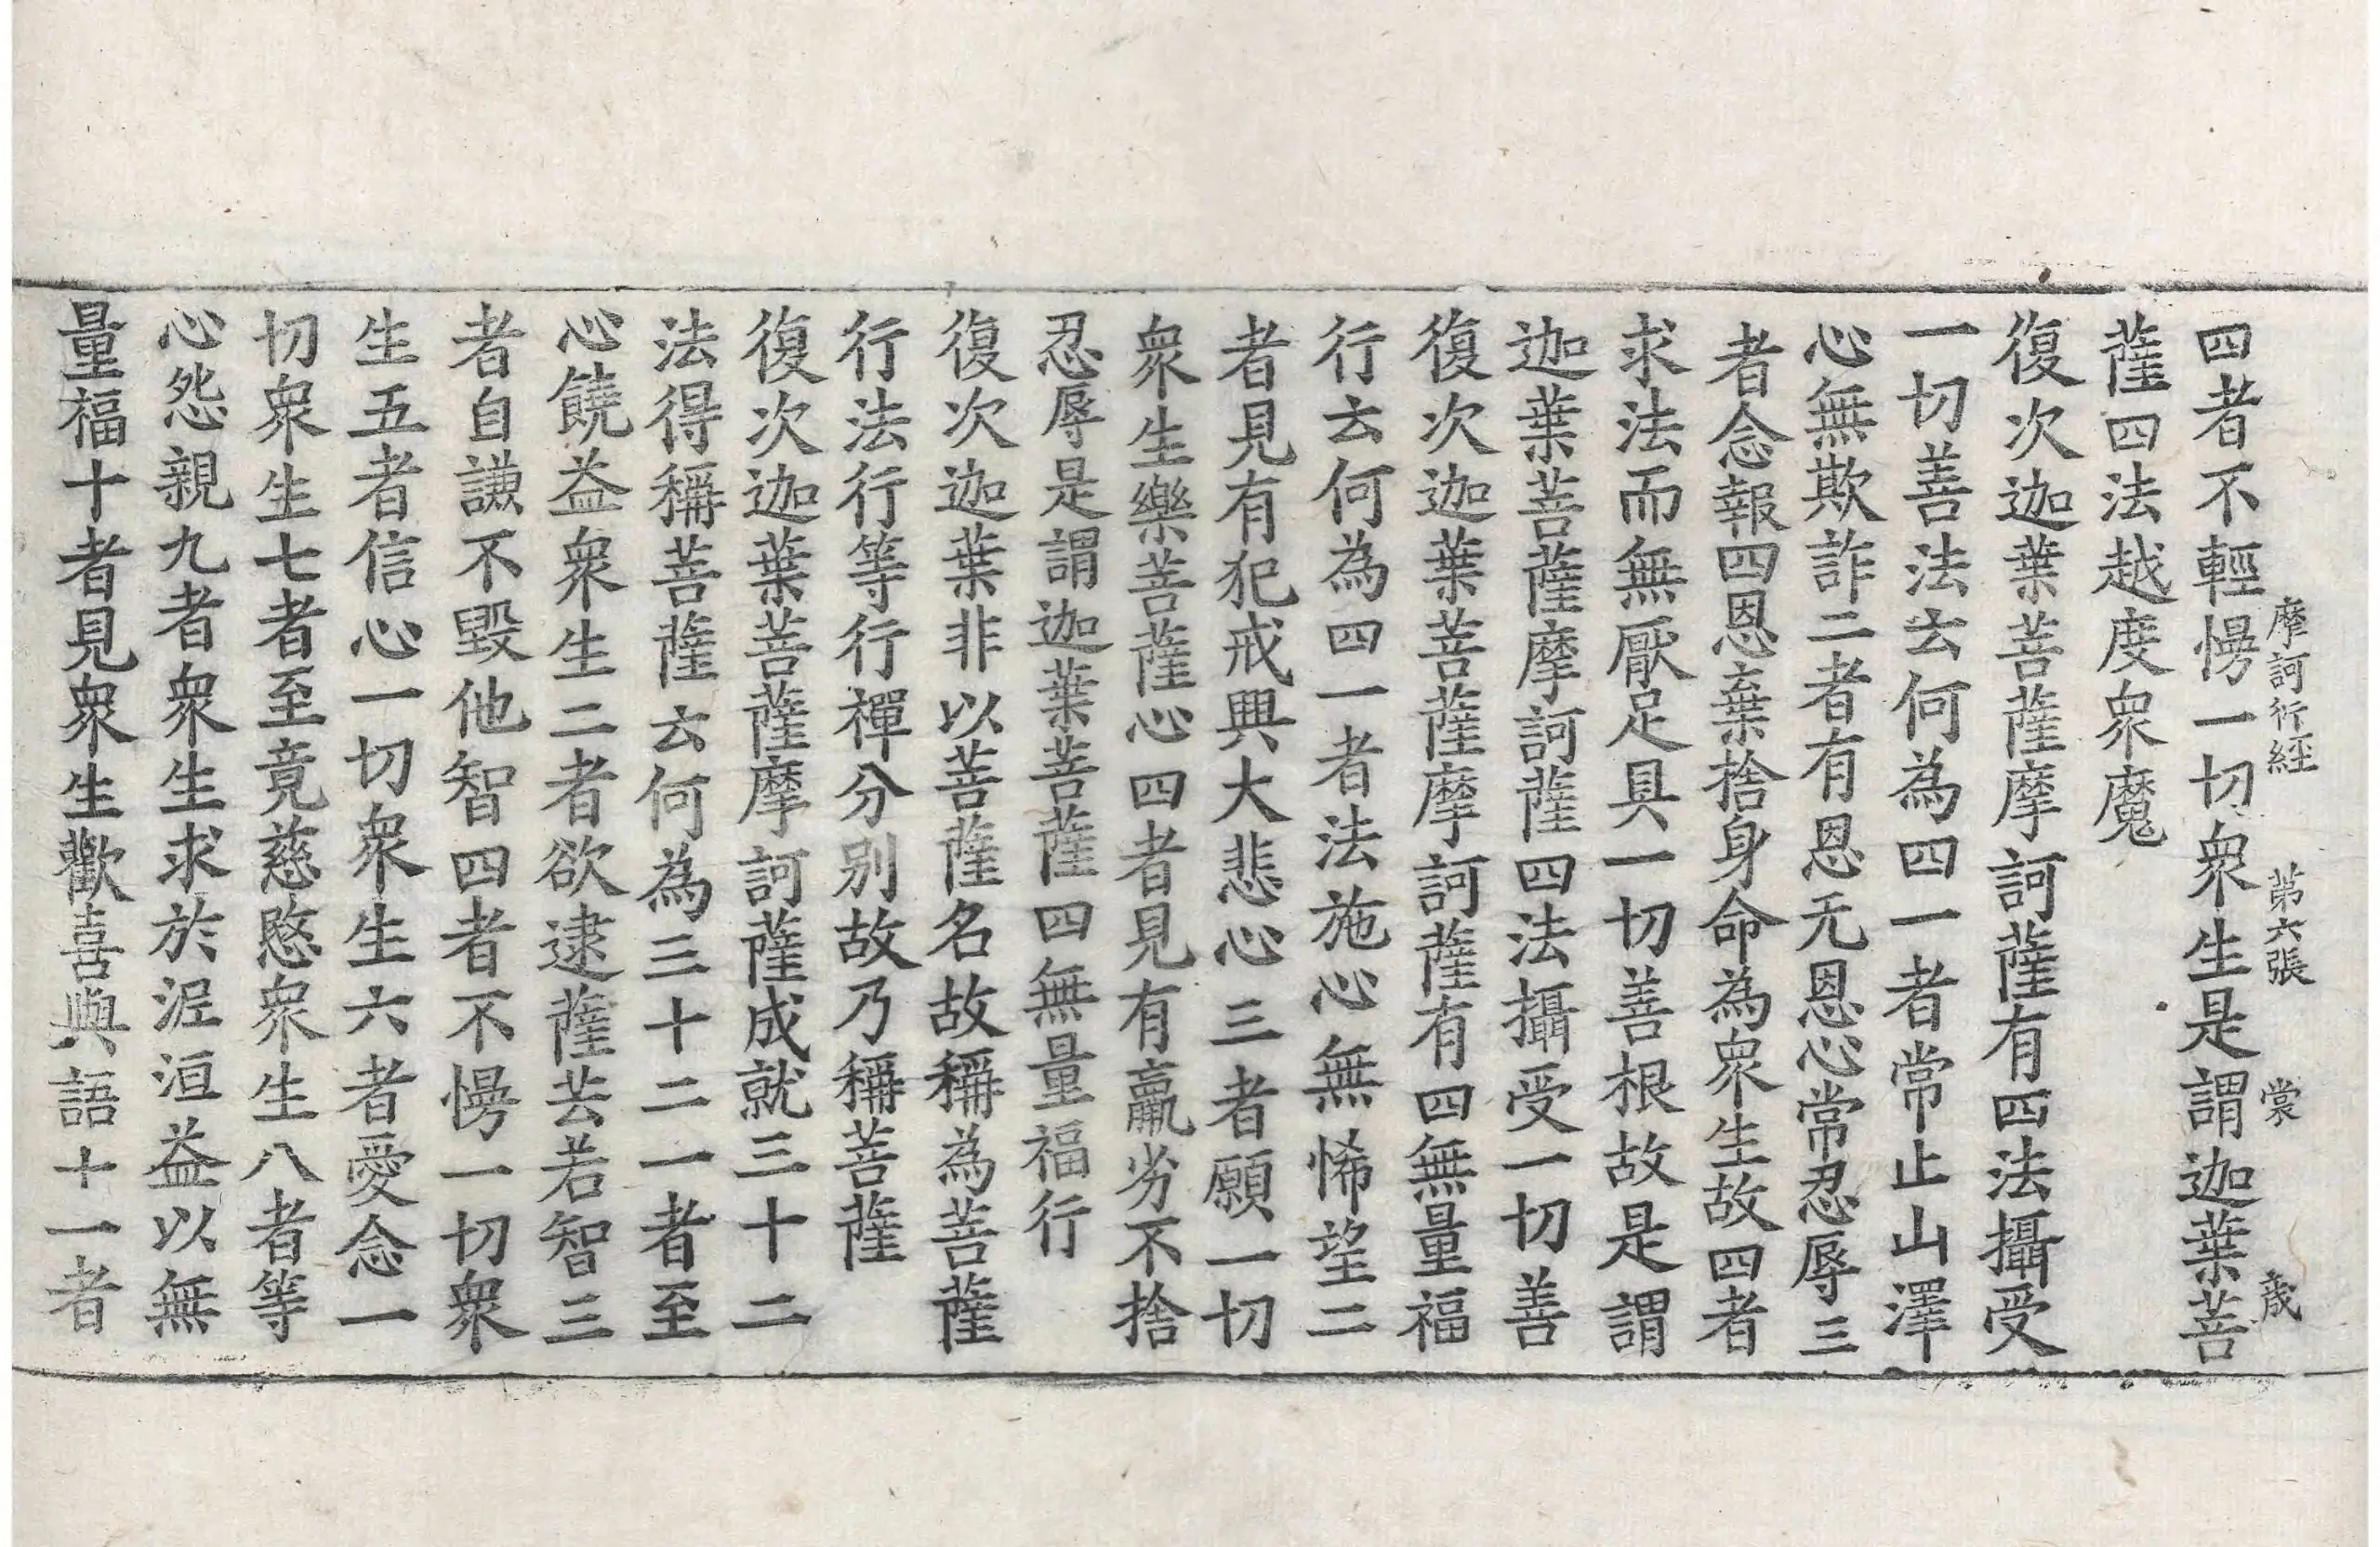 摩訶衍經　第六張　裳　歲
四者不輕慢一切衆生是謂迦葉菩
薩四法越度衆魔
復次迦葉菩薩摩訶薩有四法攝受
一切善法云何為四一者常止山澤
心無欺詐二者有恩无恩心常忍辱三
者念報四恩棄捨身命為衆生故四者
求法而無厭足具一切善根故是謂
迦葉菩薩摩訶薩四法攝受一切善
復次迦葉菩薩摩訶薩有四無量福
行云何為四一者法施心無悕望二
者見有犯戒興大悲心三者願一切
衆生樂菩薩心四者見有羸劣不捨
忍辱是謂迦葉菩薩四無量福行
復次迦葉非以菩薩名故稱為菩薩
行法行等行禪分别故乃稱菩薩
復次迦葉菩薩摩訶薩成就三十二
法得稱菩薩云何為三十二一者至
心饒益衆生二者欲逮薩芸若智三
者自謙不毀他智四者不慢一切衆
生五者信心一切衆生六者愛念一
切衆生七者至竟慈愍衆生八者等
心怨親九者衆生求於泥洹益以無
量福十者見衆生歡喜與語十一者